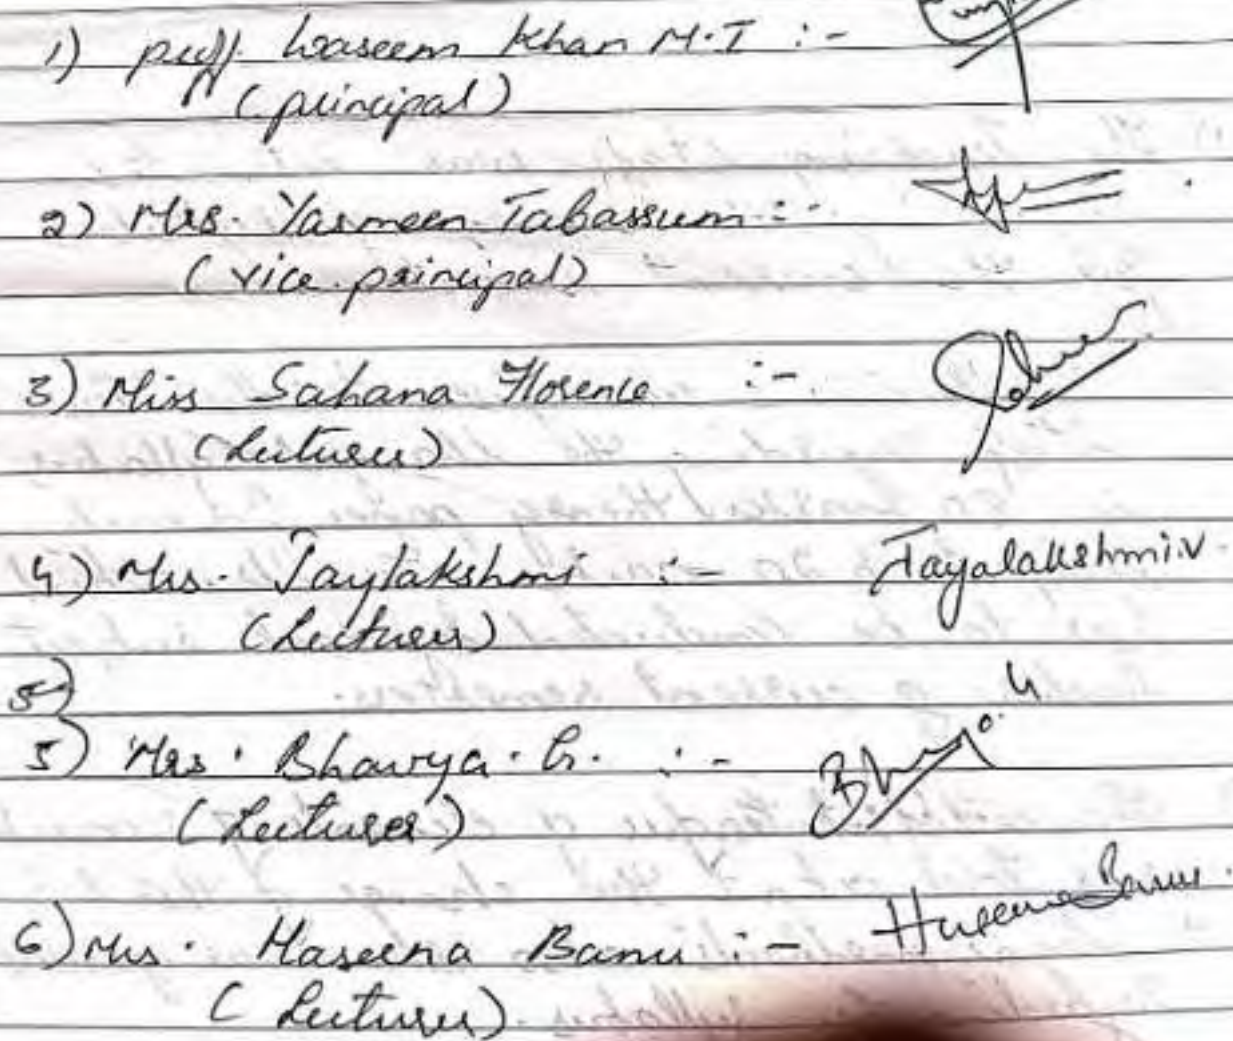 1) proff. Waseem Khan M.I :-
(principal)
2) Mrs. Yasmeen Tabassum :-
(vice principal)
3) Miss Sahana Florence :-
(Lecturer)
4) Mrs. Jaylakshmi :- Jayalakshmi.v
(Lecturer)
5)
5) Mrs. Bhavya. G. :-
(Lecturer)
6) Mrs. Haseena Banu :- Haseena Banu.
(Lecturer)